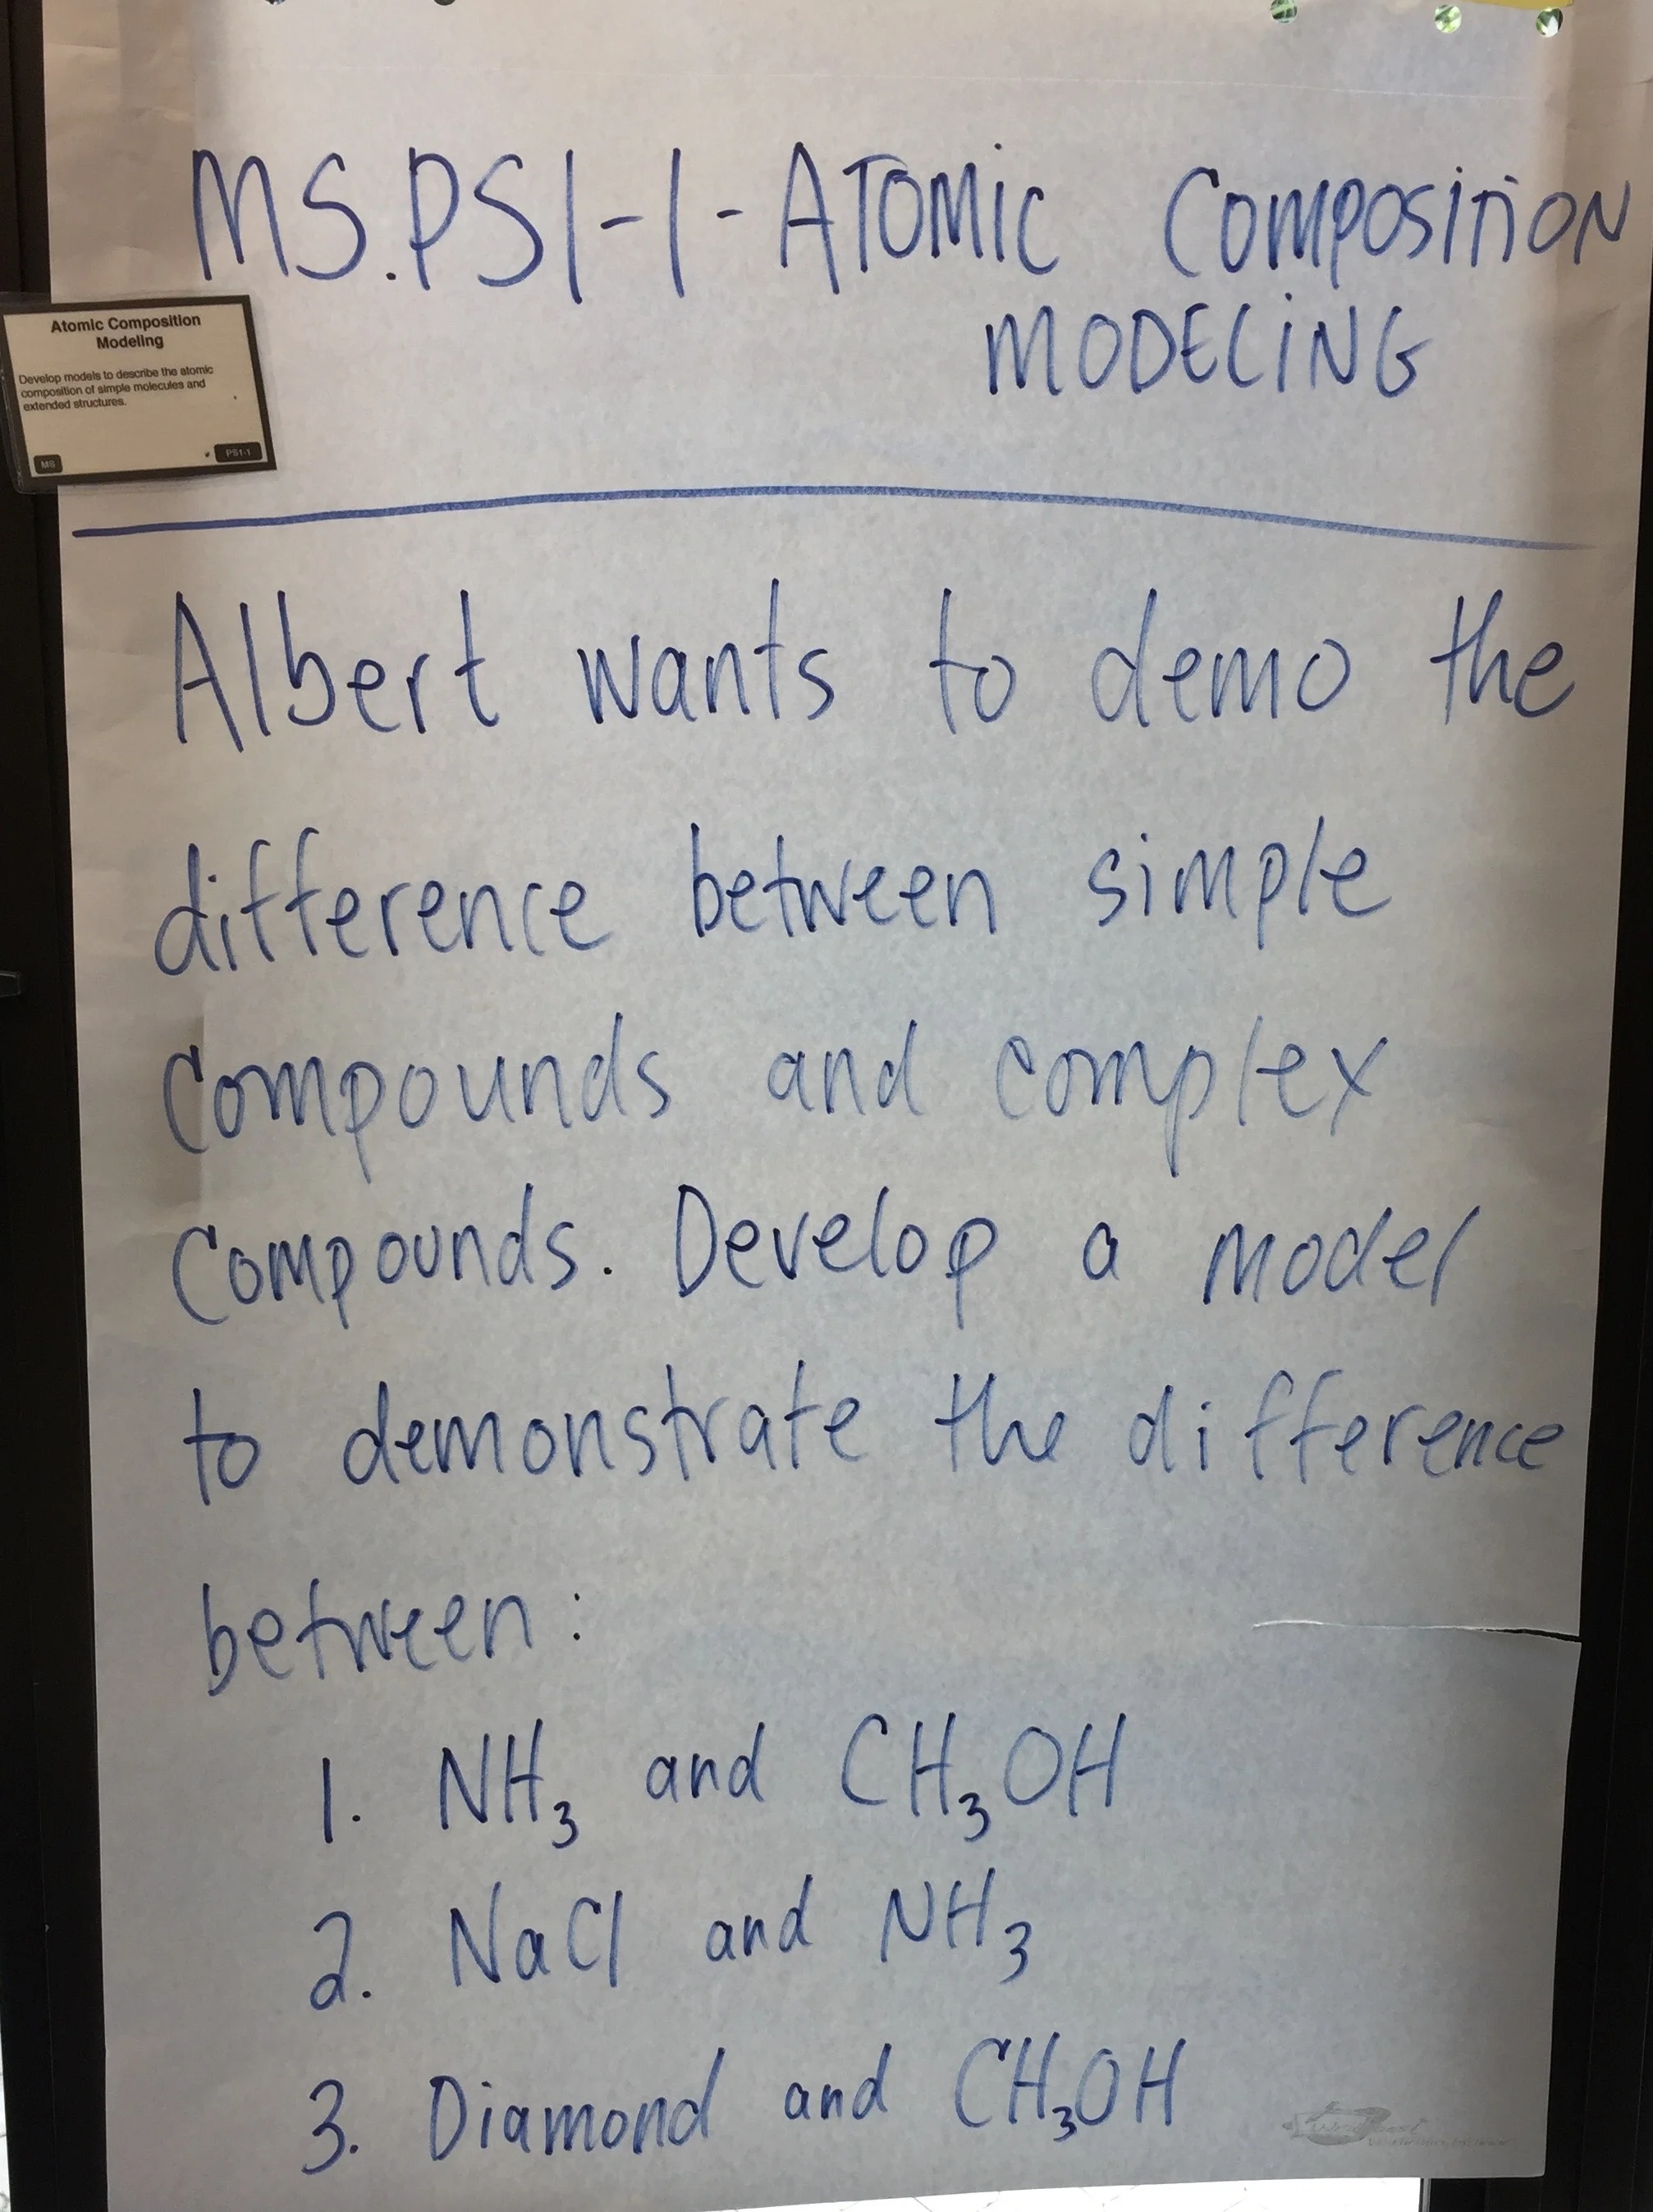 MS.PS1-1-ATOMIC COMPOSITION
MODELING
Atomic Composition
Modeling
Develop models to describe the atomic
composition of simple molecules and
extended structures.
MS
PS1-1
Albert wants to demo the
difference between simple
compounds and complex
compounds. Develop a model
to demonstrate the difference
between:
1. NH₃ and CH₃OH
2. NaCl and NH₃
3. Diamond and CH₃OH